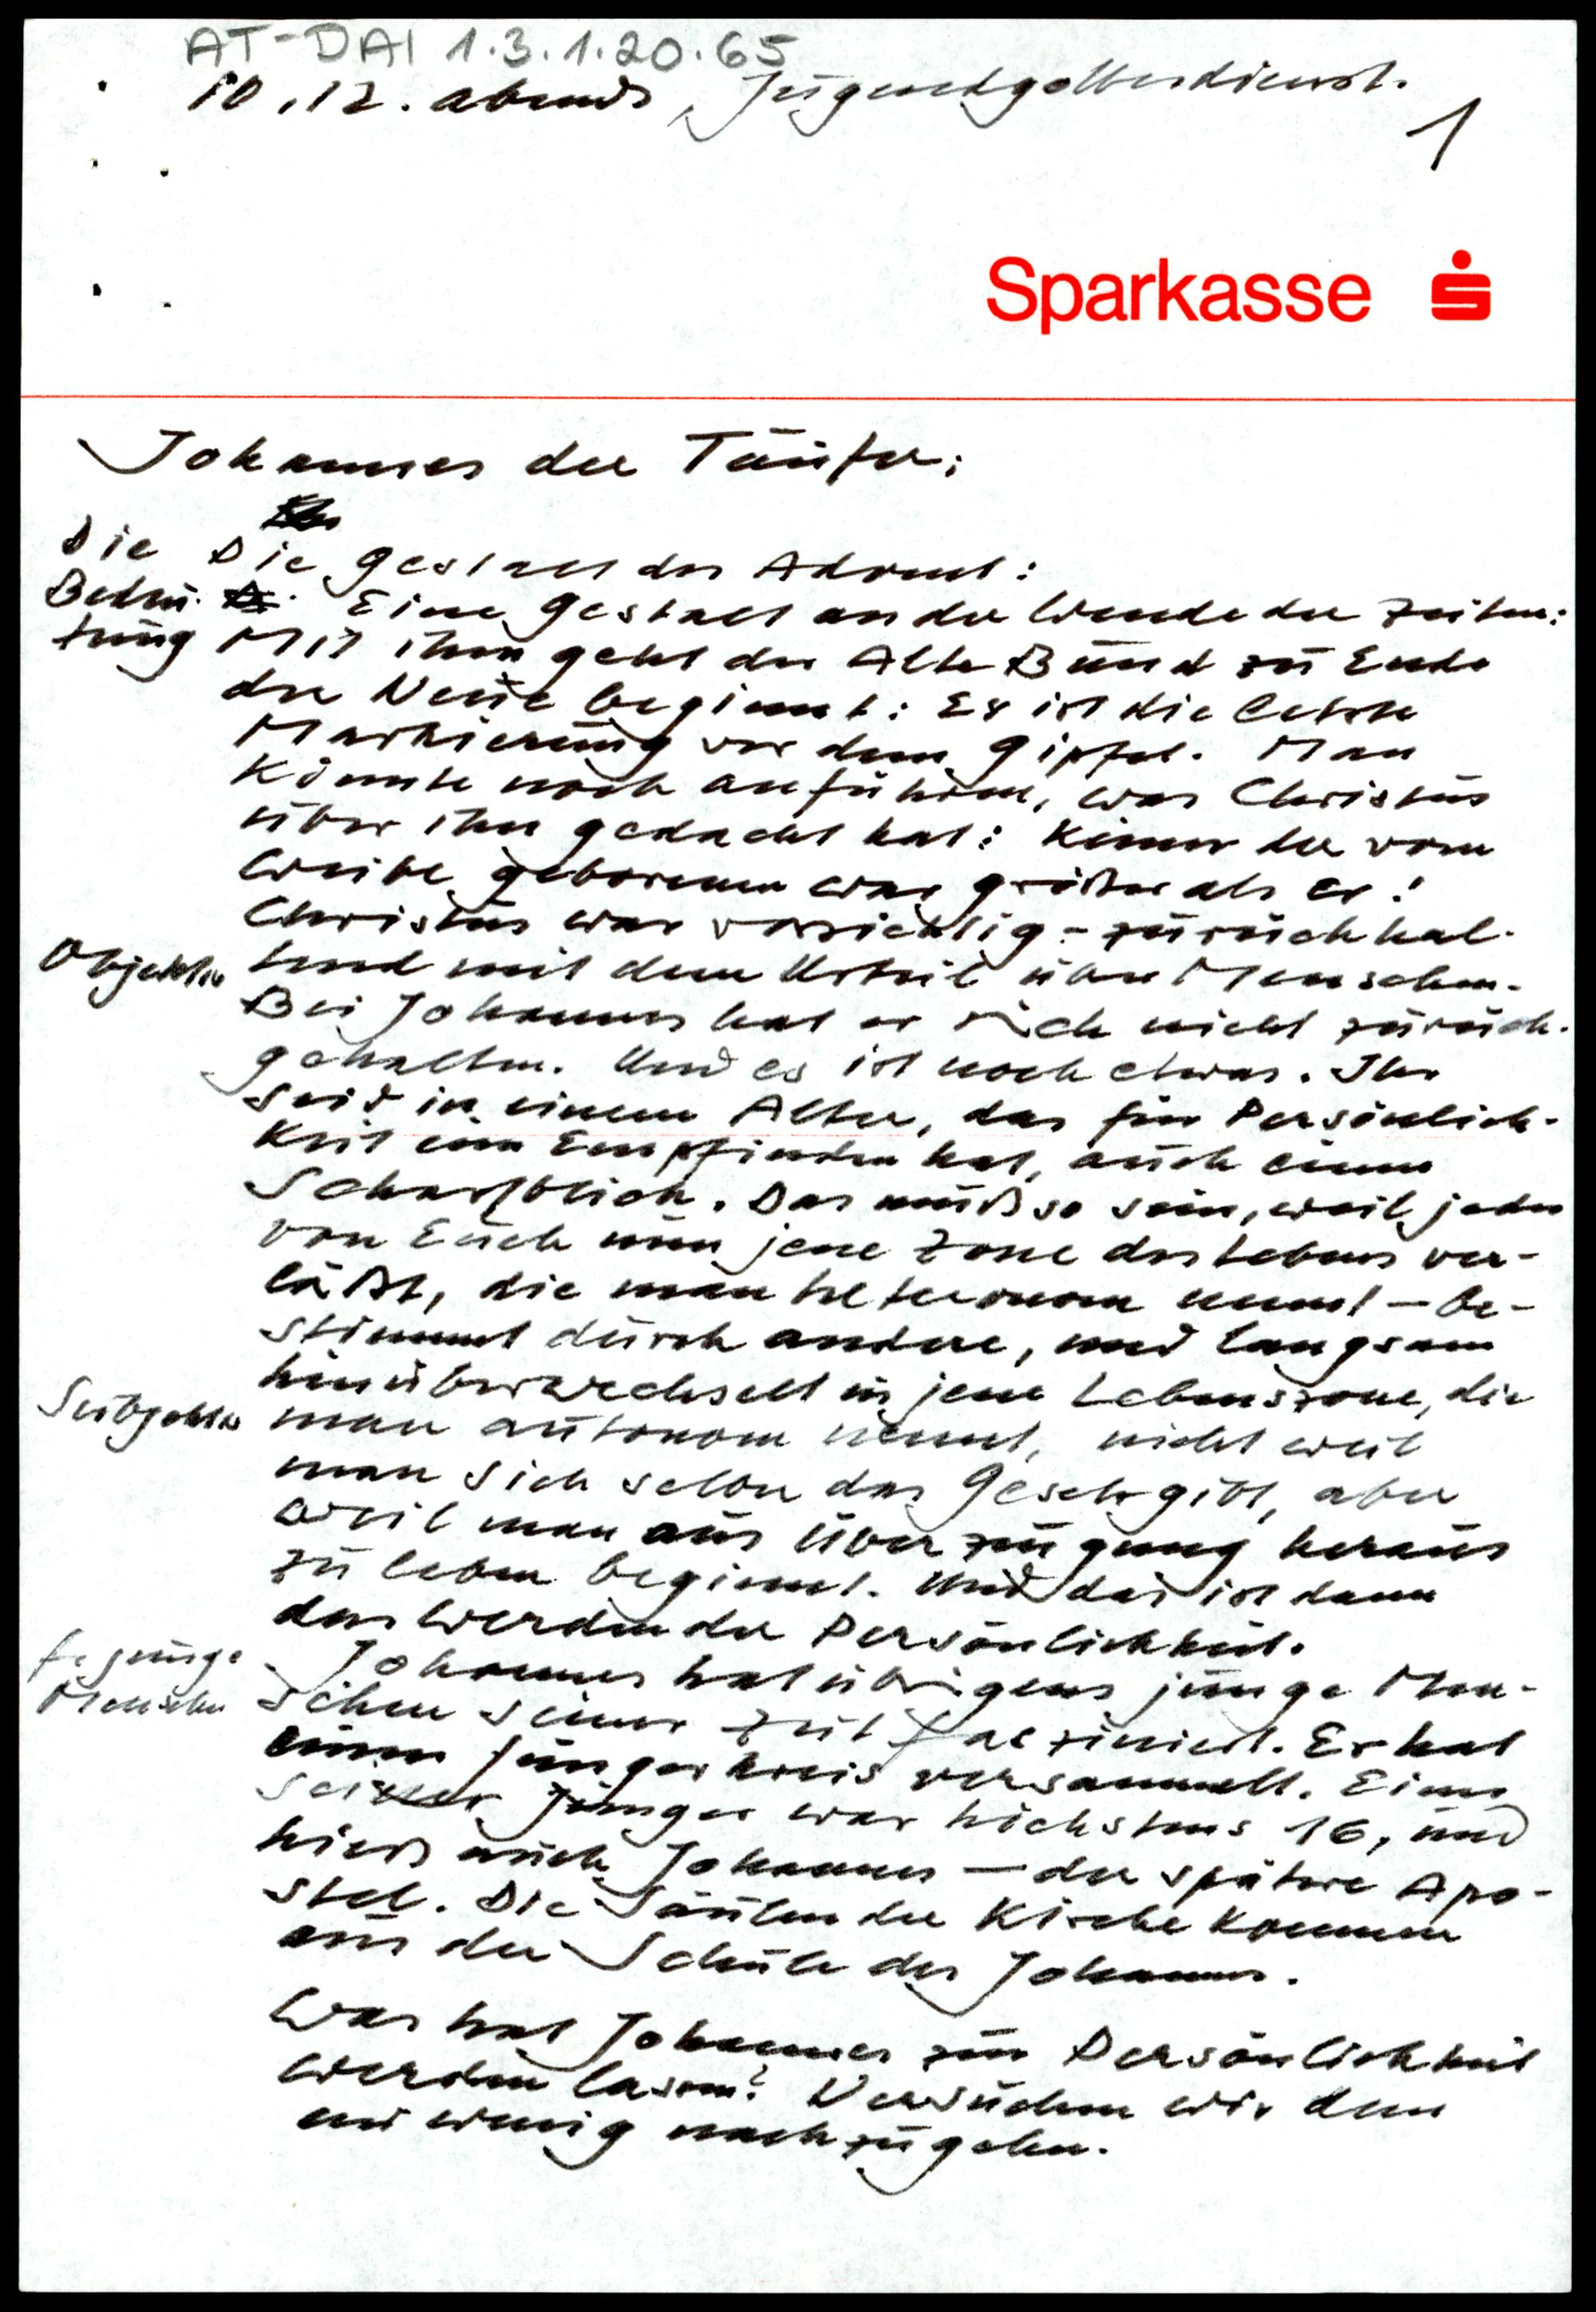 AT-DAI 1.3.1.20.65
10.12. abends, Jugendgottesdienst.
1
Sparkasse
Johannes der Täufer:
Die Die Gestalt des Advent:
Bedeu- Eine Gestalt an der Wende der Zeiten:
tung Mit ihm geht der Alte Bund zu Ende
der Neue beginnt: Es ist die letzte
Markierung vor dem Gipfel. Man
könnte noch anführen, was Christus
über ihn gedacht hat: Keiner der vom
Weibe geborenen war größer als er!
Christus war vorsichtig - zurückhal-
Objektiv tend mit dem Urteil über Menschen.
Bei Johannes hat er sich nicht zurück-
gehalten. Und es ist noch etwas. Ihr
seid in einem Alter, das für Persönlich-
keit ein Empfinden hat, auch einen
Scharfblick. Das muß so sein, weil jeder
von Euch nun jene Zone des Lebens ver-
läßt, die man heteronom nennt - be-
stimmt durch andere, und langsam
hinüberwechselt in jene Lebenszone, die
Subjektiv man autonom nennt, nicht weil
man sich selber das Gesetz gibt, aber
weil man aus Überzeugung heraus
zu leben beginnt. Und das ist dann
das Werden der Persönlichkeit.
f. junge Johannes hat übrigens junge Men-
Menschen schen seiner Zeit fasziniert. Er hat
einen Jüngerkreis versammelt. Einer
seiner Jünger war höchstens 16, und
hieß auch Johannes - der spätere Apo-
stel. Die Säulen der Kirche kommen
aus der Schule des Johannes.
Was hat Johannes zur Persönlichkeit
werden lassen? Versuchen wir dem
ein wenig nachzugehen.